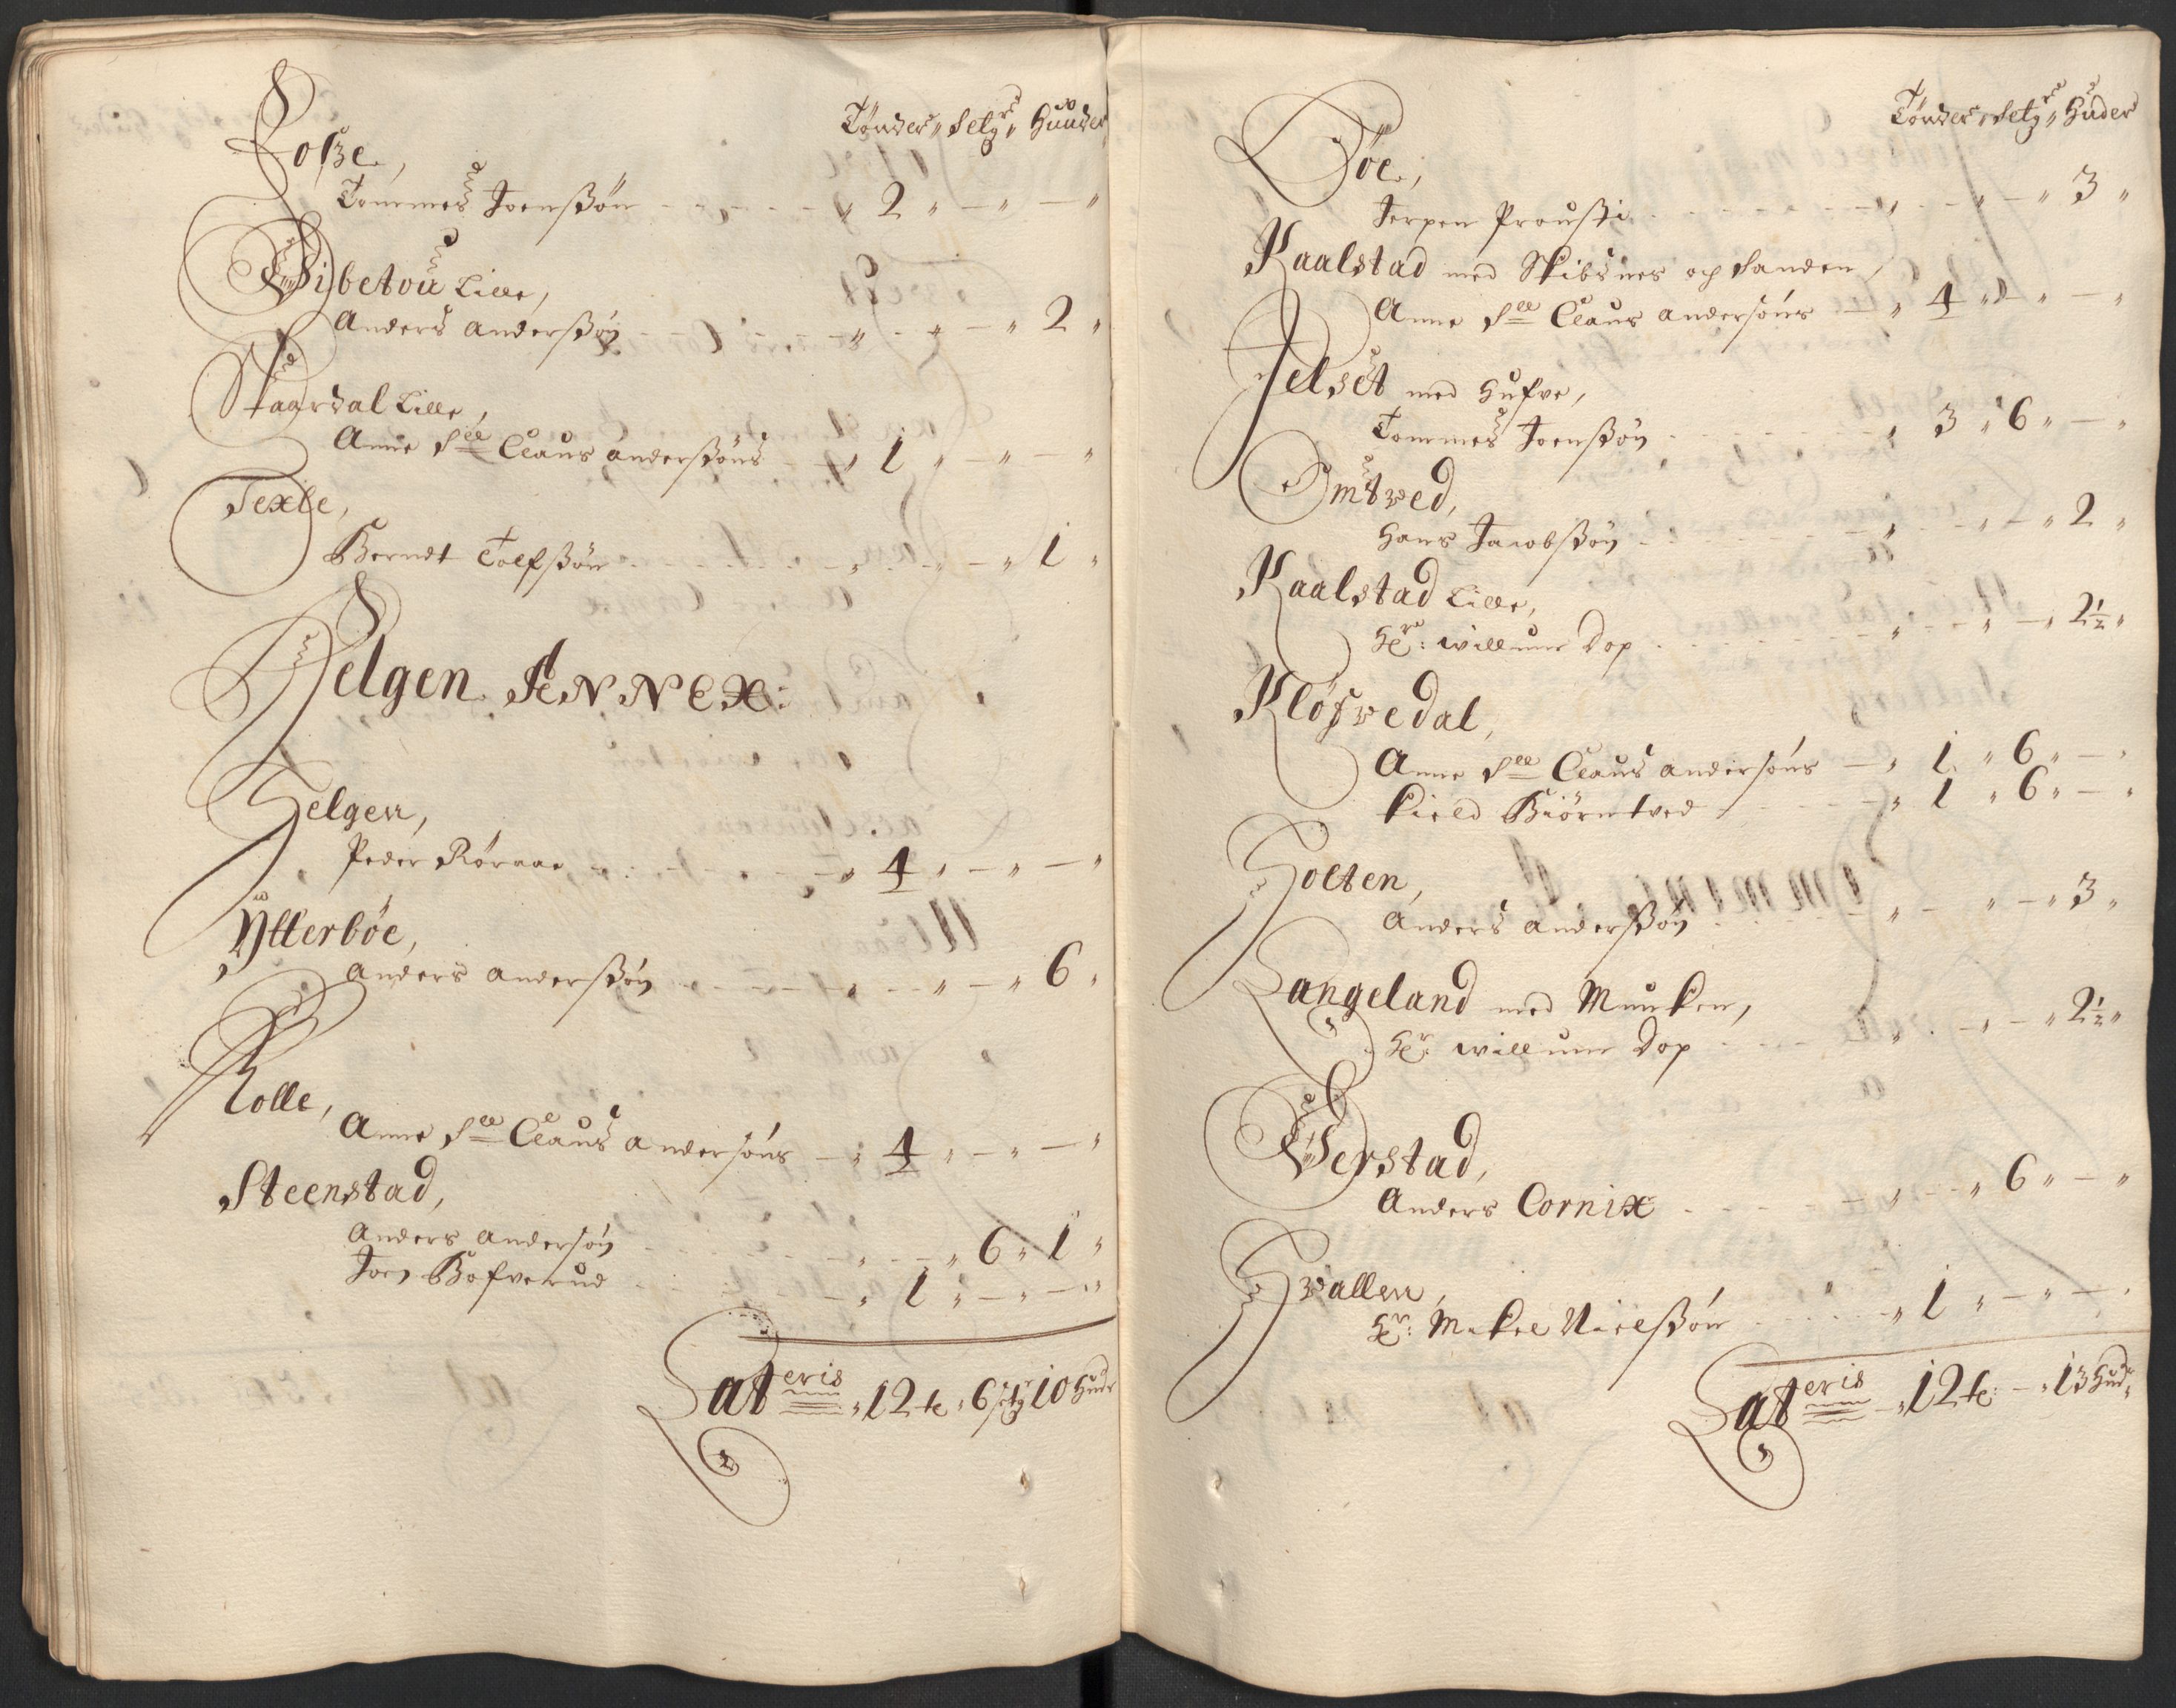 Tønder " Setg^r " Huuder
Fosße,
Tommes Joenßøn - - - - " 2 " - " - "
Vibetou Lille,
Anders Anderßøn - - " - " - " 2 "
Skaardal Lille,
Anne S^ll Claus Anderßøns - " 1 " - " - "
Texle,
Berndt Tolfßøn - - - " - " - " 1 "
Helgen ANNEX:
Helgen,
Peder Røraae - - - " 4 " - " - "
Ytterbøe,
Anders Anderßøn - - - " - " - " 6 "
Kolle,
Anne S^ll Claus Andersøns - " 4 " - " - "
Steenstad,
Anders Andersøn - - - " - " 6 " 1 "
Joen Bofverud - - - " 1 " - " - "
Lat^eris " 12 te " 6 setg 10 Hudr
Tønder " Setg^r " Huder
Bøe,
Jerpen Proušti - - - " - " - " 3 "
Kaalstad med Skibsnes op Sanden,
Anne S^ll Claus Andersøns - " 4 " - " - "
Jelset med Hufve,
Tommes Joenßøn - - - " 3 " 6 " - "
Omtved,
Hans Jacobßøn - - - " - " - " 2 "
Kaalstad Lille,
H^r: Willum Dop - - - " - " - " 2½ "
Kløfvedal,
Anne S^ll Claus Andersøns - " 1 " 6 " - "
Kield Biørntved - - - " 1 " 6 " - "
Holten,
Anders Anderßøn - - - " - " - " 3 "
Langeland med Munken,
H^r: Willum Dop - - - " - " - " 2½ "
Verstad,
Anders Cornix - - - " - " 6 " - "
Hvallen,
H^r: Mikel Nielßøn - - - " 1 " - " - "
Lat^eris " 12 te: - " 13 Hud^r